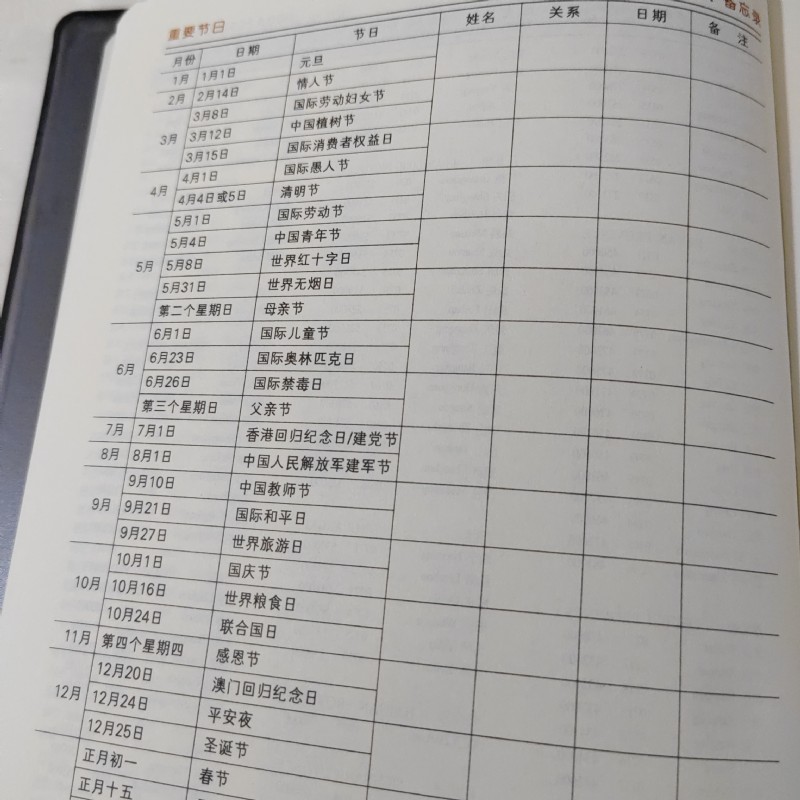 重要节日
备忘录
月份 日期 节日 姓名 关系 日期 备注
1月 1月1日 元旦
2月 2月14日 情人节
3月 3月8日 国际劳动妇女节
3月12日 中国植树节
3月15日 国际消费者权益日
4月 4月1日 国际愚人节
4月4日或5日 清明节
5月 5月1日 国际劳动节
5月4日 中国青年节
5月8日 世界红十字日
5月31日 世界无烟日
第二个星期日 母亲节
6月 6月1日 国际儿童节
6月23日 国际奥林匹克日
6月26日 国际禁毒日
第三个星期日 父亲节
7月 7月1日 香港回归纪念日/建党节
8月 8月1日 中国人民解放军建军节
9月 9月10日 中国教师节
9月21日 国际和平日
9月27日 世界旅游日
10月 10月1日 国庆节
10月16日 世界粮食日
10月24日 联合国日
11月 第四个星期四 感恩节
12月 12月20日 澳门回归纪念日
12月24日 平安夜
12月25日 圣诞节
正月初一 春节
正月十五